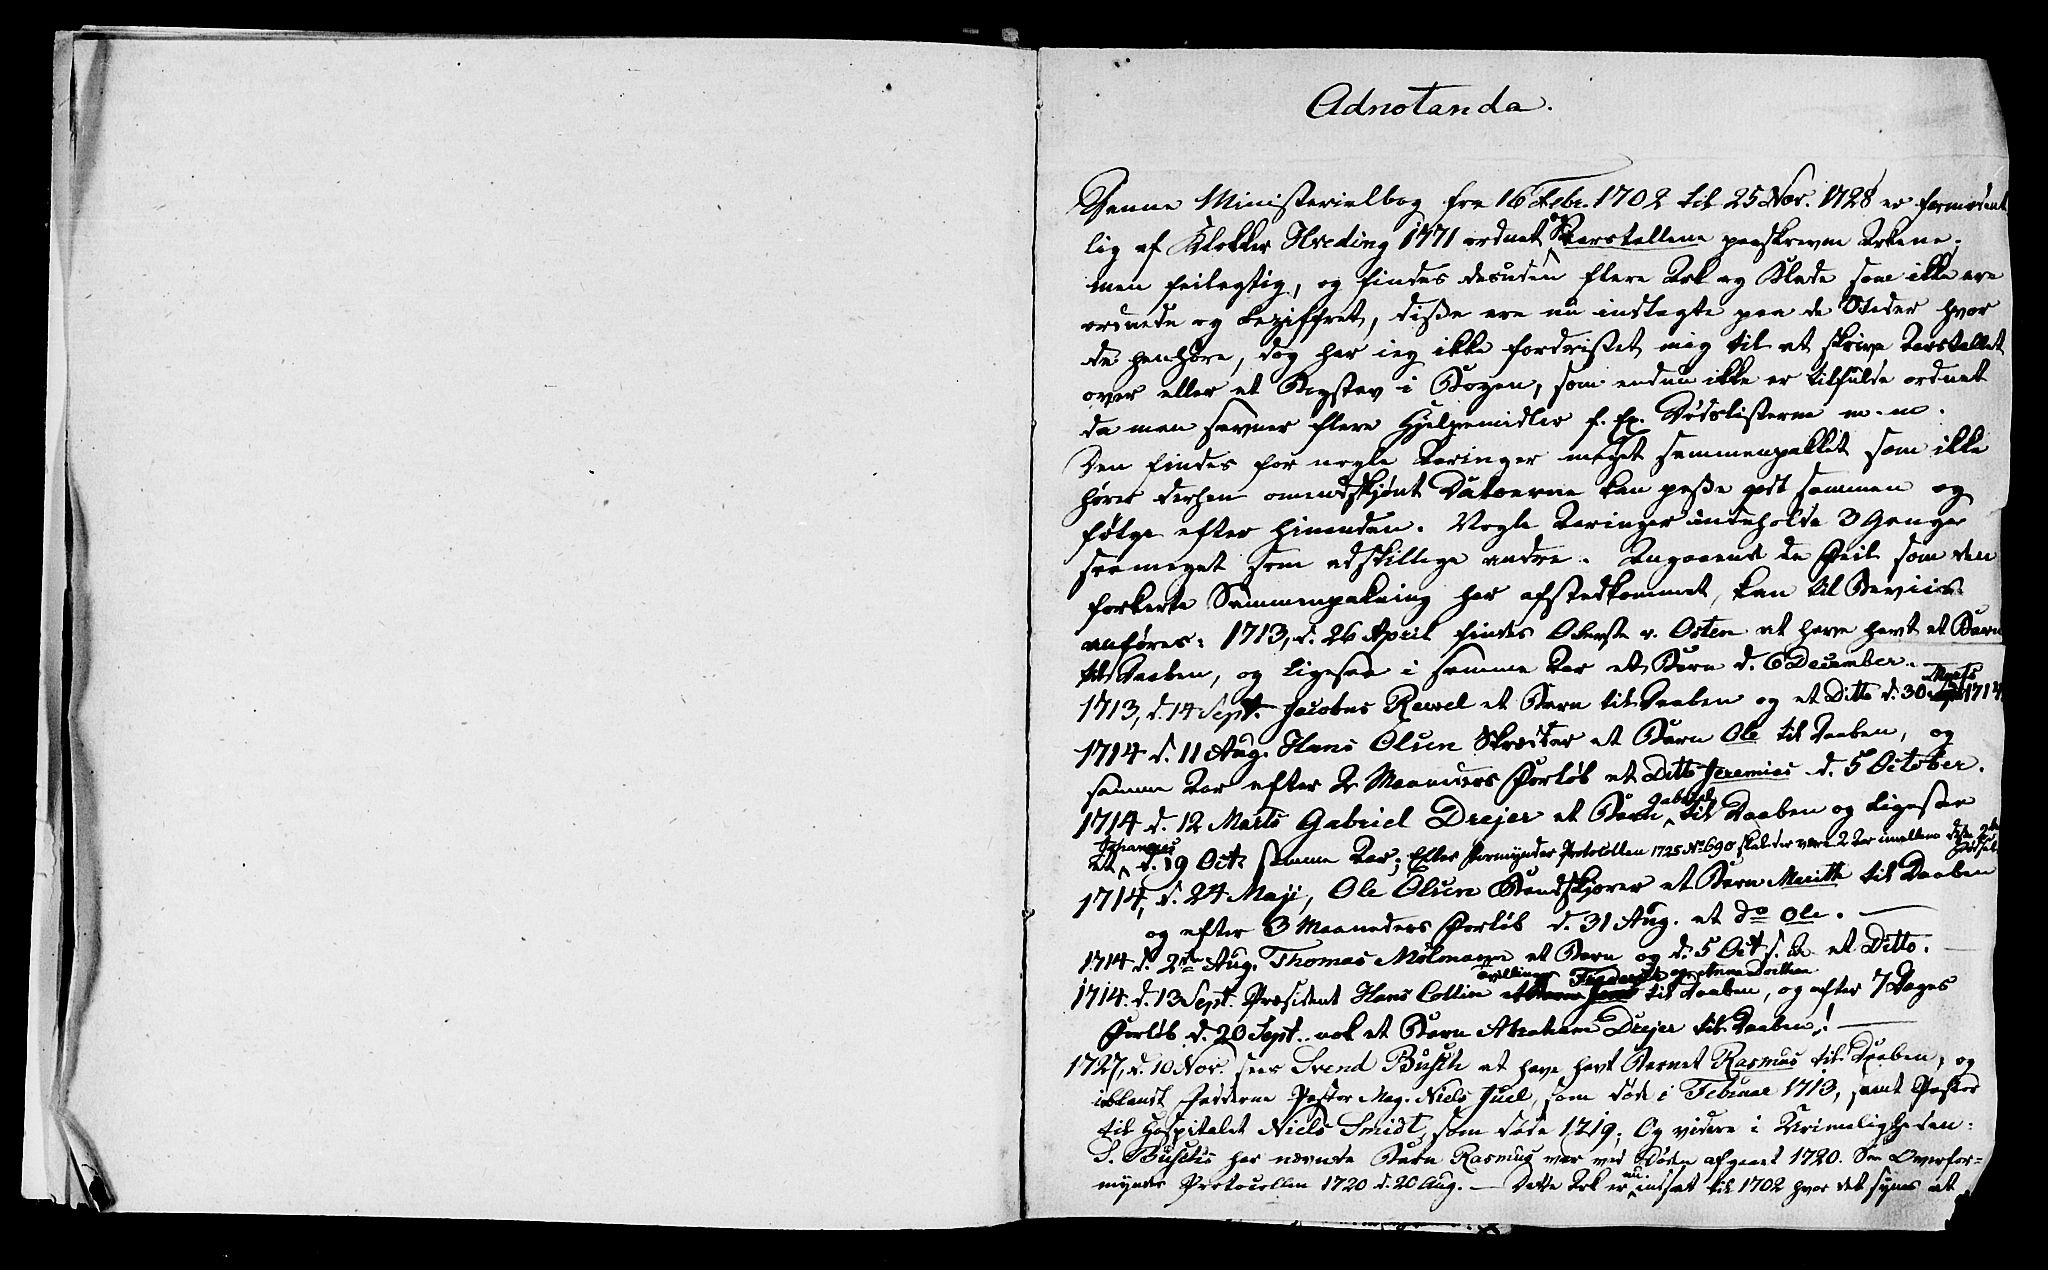 Adnotanda.
Denne Ministerialbog fra 16 Febr. 1702 til 25 Nov. 1728 er formodent
lig af Klokker Hveding 1771 ordnet og Aarstallene paaskrevne Arkene,
men feilagtig, og findes desuden flere Ark og Blade som ikke ere
ordnede og beziffret, disse ere nu indlagte paa de Steder hvor
de henhøre, dog har ieg ikke fordristet mig til at skrive Aarstallet
over eller et Bogstav i Bogen, som endnu ikke er tilfulde ordnet
da man savner flere Hjelpemidler f. Ex. Dødslisterne m. m.
Den findes for nogle Aaringer meget sammenpakket som ikke
hører derhen omendskjønt Datoerne kan passe godt sammen og
følge efter hinanden. Nogle Aaringer indeholde 3 Gange
saameget som adskillige andre. Angaaende de Feil som den
forkerte Sammenpakning har afstedkommet, kan til Beviis
anføres: 1713, d. 26 April findes Oberste v. Osten at have havt et Barn
til Daaben, og ligesaa i samme Aar et Barn d. 6 December.
1713, d. 14 Sept. Jacobus Rewel et Barn til Daaben og et Ditto d. 30 Marts 1714
1714 d. 11 Aug. Hans Olsen Skræder et Barn Ole til Daaben, og
samme Aar efter 2 Maaneders Forløb et Ditto Jeremias d. 5 October.
1714 d. 12 Marts Gabriel Drejer et Barn Gabriel til Daaben og ligesaa
et Johannes d. 19 Octr samme Aar; Efter Formynder Protocollen 1725 No 690 skal der være 2 Aar imellem disse 2de Fødsel
1714, d. 24 Maji, Ole Olsen Bundskjærer et Barn Meritte til Daaben
og efter 3 Maaneders Forløb d. 31 Aug. et do Ole.
1714 d. 2den Aug. Thomas Molmann et Barn og d. 5 Oct s. A. et Ditto.
1714 d. 13 Sept. Præsident Hans Collin tvillinger Frederik og Anna Dorthea til Daaben, og efter 7 Dages
Forløb d. 20 Sept. nok et Barn Abraham Drejer til Daaben!
1727, d. 10 Nov. sees Svend Busch at have havt Barnet Rasmus til Daaben, og
iblandt Fadderne Pastor Mag. Niels Juel, som døde i Februar 1713, samt Pastor
til Hospitalet Niels Smidt, som døde 1719; Og videre i Urimeligheden:
S. Busches her nævnte Barn Rasmus var ved Døden afgaaet 1720. See Overfor-
mynder Protocollen 1720 d. 20 Aug. — Dette Ark er nu indsat til 1702 hvor det synes at